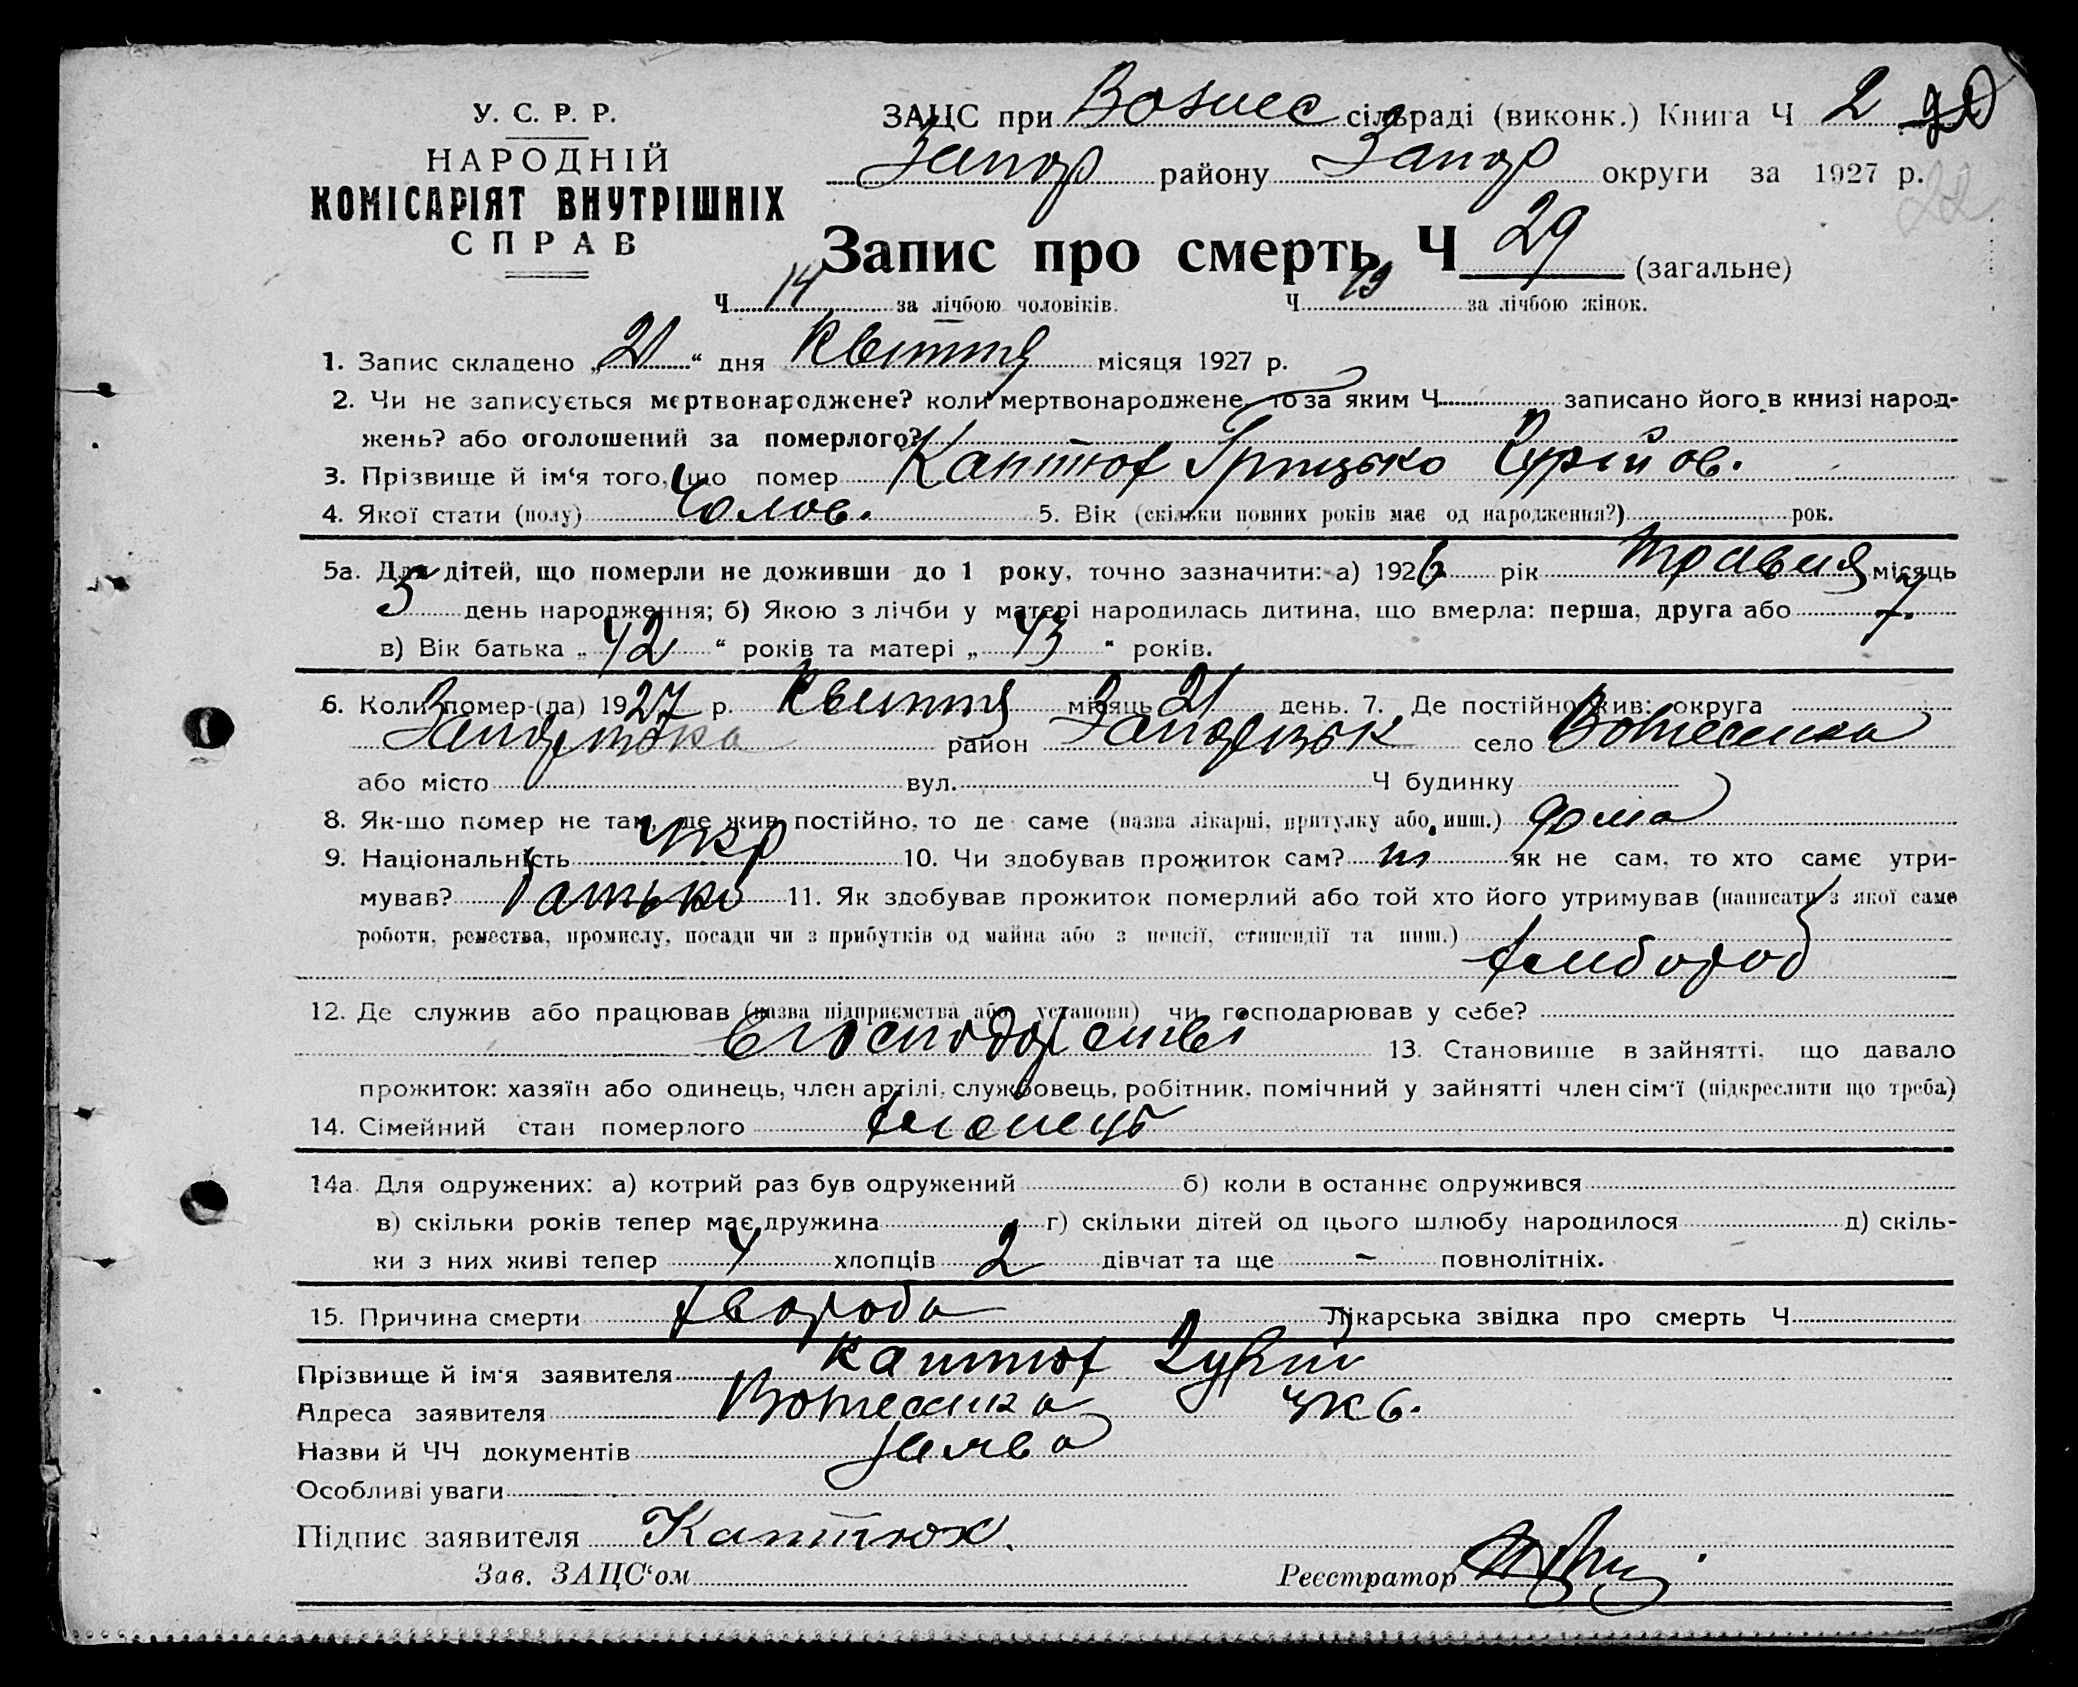 У. С. Р. Р.
НАРОДНІЙ
КОМІСАРІЯТ ВНУТРІШНІХ
СПРАВ
ЗАЦС при Вознес сільраді (виконк.) Книга Ч 2
Запор району Запор округи за 1927 р.
22
Запис про смерть Ч 29 (загальне)
Ч 14 за лічбою чоловіків. Ч за лічбою жінок.
1. Запис складено „21“ дня Квітня місяця 1927 р.
2. Чи не записується мертвонароджене? коли мертвонароджене, то за яким Ч записано його в книзі народ-
жень? або оголошений за померлого?
3. Прізвище й ім‘я того, що помер Каптюх Грицько Гурійов.
4. Якої стати (полу) Чолов. 5. Вік (скільки повних років має од народження?) рок.
5а. Для дітей, що померли не доживши до 1 року, точно зазначити: а) 1926 рік травня місяць
5 день народження; б) Якою з лічби у матері народилась дитина, що вмерла: перша, друга або 7.
в) Вік батька „42“ років та матері „43“ років.
6. Коли помер-(ла) 1927 р. Квітня місяць 21 день. 7. Де постійно жив: округа
район село Вознесенка
або місто вул. Ч будинку
8. Як-що помер не там, де жив постійно, то де саме (назва лікарні, притулку або инш.) дома
9. Національність Укр 10. Чи здобував прожиток сам? ні як не сам, то хто саме утри-
мував? батько 11. Як здобував прожиток померлий або той хто його утримував (написати з якої саме
роботи, ремества, промислу, посади чи з прибутків од майна або з пенсії, стипендії та инш.)
хлібороб
12. Де служив або працював (назва підприємства або установи) чи господарював у себе?
в господарстві 13. Становище в зайнятті, що давало
прожиток: хазяїн або одинець, член артілі, службовець, робітник, помічний у зайнятті член сім‘ї (підкреслити що треба)
14. Сімейний стан померлого
14а. Для одружених: а) котрий раз був одружений б) коли в останнє одружився
в) скільки років тепер має дружина г) скільки дітей од цього шлюбу народилося д) скіль-
ки з них живі тепер 4 хлопців 2 дівчат та ще - повнолітніх.
15. Причина смерти хвороба Лікарська звідка про смерть Ч
Прізвище й ім‘я заявителя Каптюх Гурій
Адреса заявителя Вознесенка
Назви й ЧЧ документів заява
Особливі уваги
Підпис заявителя Каптюх.
Зав. ЗАЦС‘ом Реєстратор